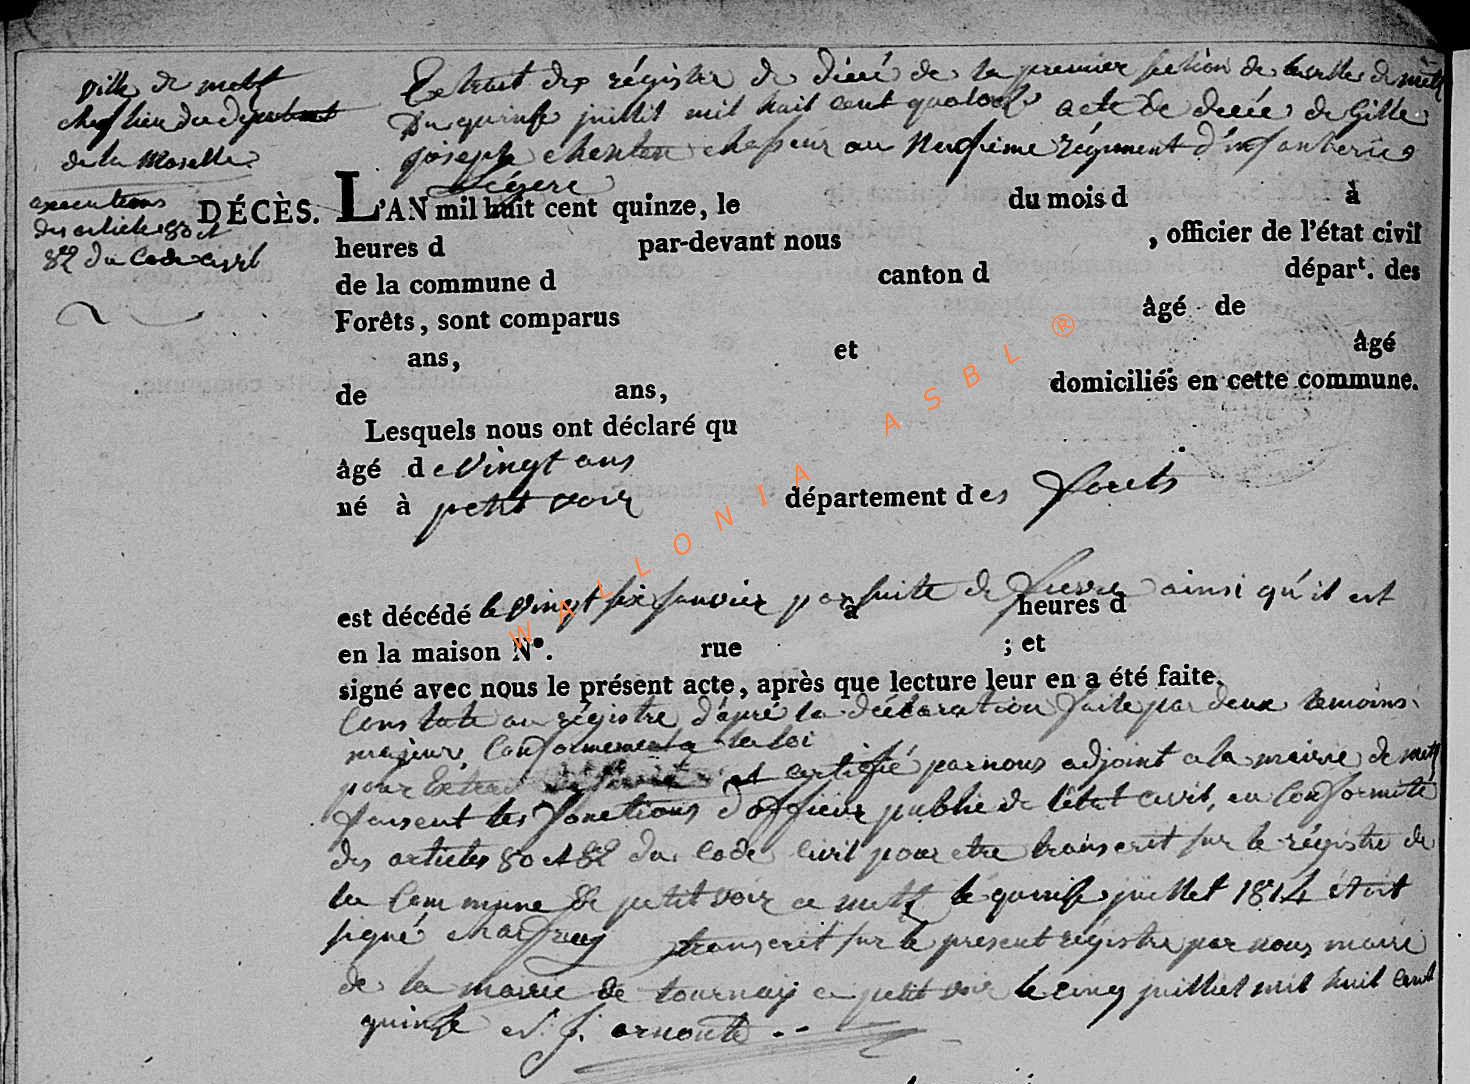 ville de metz
chef lieu du département
de la Moselle
executions
des articles 80 et
82 du Code civil
Extrait des régistre de décié de la premier section de la ville de metz
Du quinse juillit mil huit cent quatorze acte de décié de Gille
joseph chenten chasseur au Neufieme régiment d'infanterie
Légere
DÉCÈS. L'AN mil huit cent quinze, le du mois d à
heures d par-devant nous , officier de l'état civil
de la commune d canton d départ. des
Forêts, sont comparus âgé de
ans, et âgé
de ans, domiciliés en cette commune.
Lesquels nous ont déclaré qu
âgé de vingt ans
né à petit voir département des forets
est décédé le vingt six janvier par suite de fievre à heures d ainsi qu'il est
en la maison N°. rue ; et
signé avec nous le présent acte, après que lecture leur en a été faite.
Constate au régistre d'apré la déclaration faite par deux temoins
majeurs, Conformement a la loi
pour Extrait et certifié par nous adjoint a la mairie de metz
faisent les fonctions d'officier public de l'état civil, en Conformité
des articles 80 et 82 du Code Civil pour etre transcrit sur le régistre de
la Commune de petit voir a metz le quinse juillet 1814 étoit
signé transcrit sur le present régistre par nous maire
de la mairie de tournay a petit voir le cinq juilliet mil huit cent
quinse N. J. arnould
WALLONIA ASBL ®